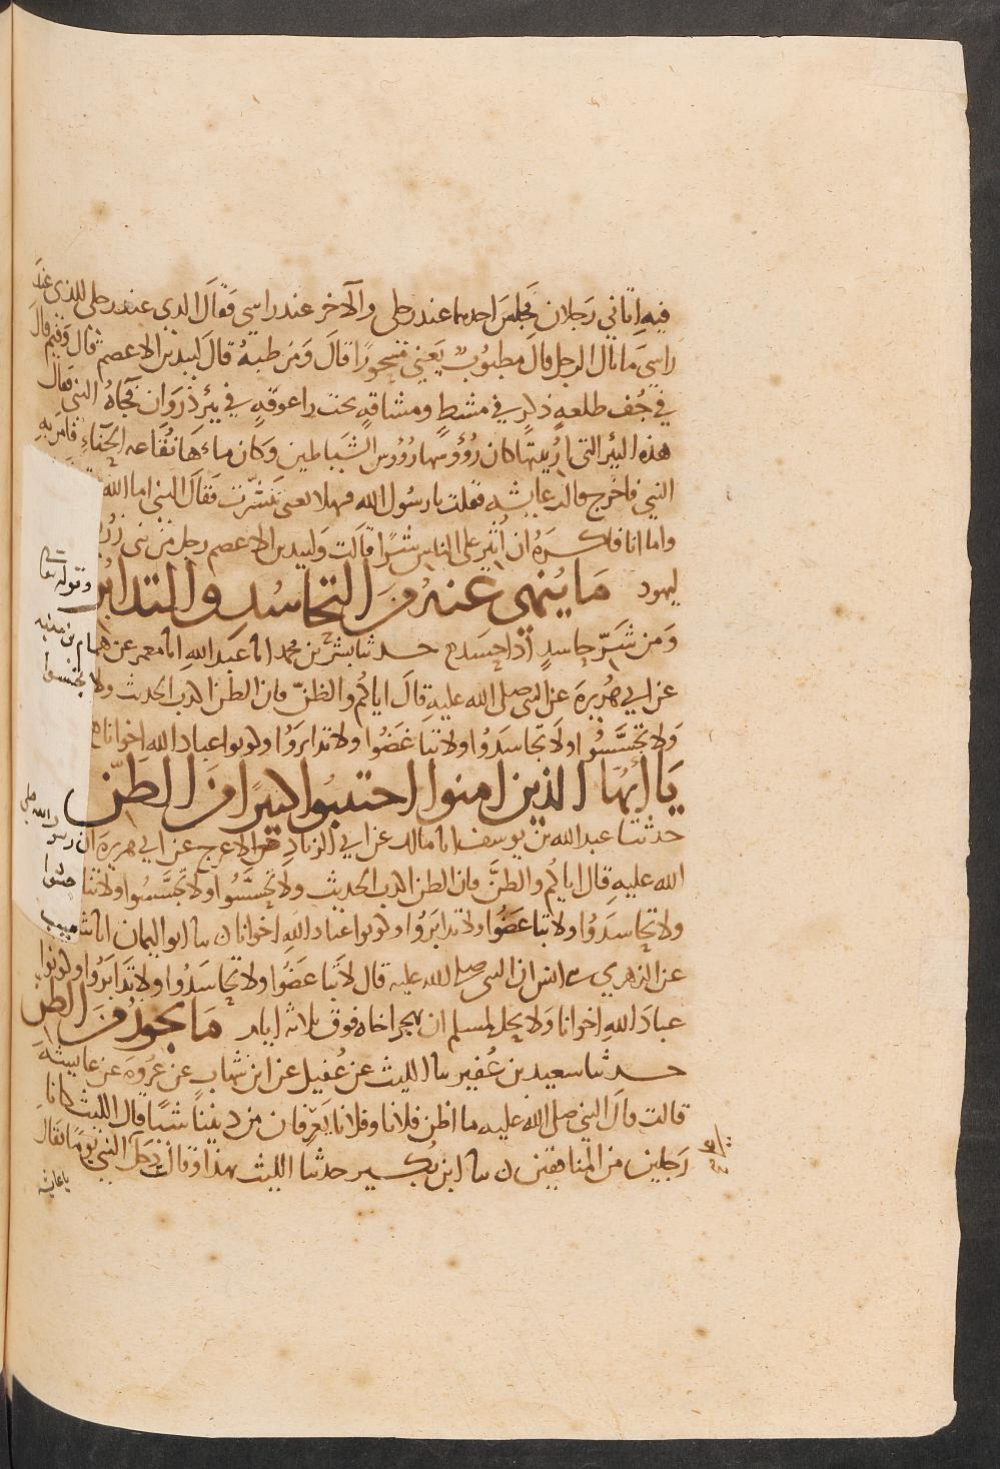 فيه اتاني رجلان فجلس احدهما عند رجلي والآخر عند راسي فقال الذي عند رجلي للذي عند
راسي ما بال الرجل قال مطبوب يعني مسحورا قال ومن طبه قال لبيد بن الاعصم قال وفيم قال
في جف طلعة ذكر في مشط ومشاقة تحت راعوفة في بئر ذروان فجاء النبي فقال
هذه البئر التي اريتها كان رؤوسها رؤوس الشياطين وكان ماءها نقاعة الحناء فامر به
النبي فاخرج قالت عايشة فقلت يا رسول الله فهلا تعني تنشرت فقال النبي اما الله
واما انا فاكره ان اثير على الناس شرا قالت ولبيد بن الاعصم رجل من بني زريق
ليهود ما ينهى عنه من التحاسد والتدابر وقوله تعالى
ومن شر حاسد اذا حسد حدثنا بشر بن محمد انا عبد الله انا معمر عن همام بن منبه
عن ابي هريرة عن النبي صلى الله عليه قال اياكم والظن فان الظن اكذب الحديث ولا تحسسوا
ولا تجسسوا ولا تحاسدوا ولا تباغضوا ولا تدابروا وكونوا عباد الله اخوانا
يا ايها الذين امنوا اجتنبوا كثيرا من الظن
حدثنا عبد الله بن يوسف انا مالك عن ابي الزناد عن الاعرج عن ابي هريرة ان رسول الله صلى
الله عليه قال اياكم والظن فان الظن اكذب الحديث ولا تحسسوا ولا تجسسوا ولا تناجشوا
ولا تحاسدوا ولا تباغضوا ولا تدابروا وكونوا عباد الله اخوانا ن نا ابو اليمان انا شعيب
عن الزهري انس ان النبي صلى الله عليه قال لا تباغضوا ولا تحاسدوا ولا تدابروا وكونوا
عباد الله اخوانا ولا يحل لمسلم ان يهجر اخاه فوق ثلاثة ايام ما يجوز من الظن
حدثنا سعيد بن عفير نا الليث عن عقيل عن ابن شهاب عن عروة عن عايشة
قالت قال النبي صلى الله عليه ما اظن فلانا وفلانا يعرفان من ديننا شيا قال الليث كانا
رجلين من المنافقين ن نا ابن بكير حدثنا الليث بهذا وقالت دخل النبي يوما فقال
يا عايشة